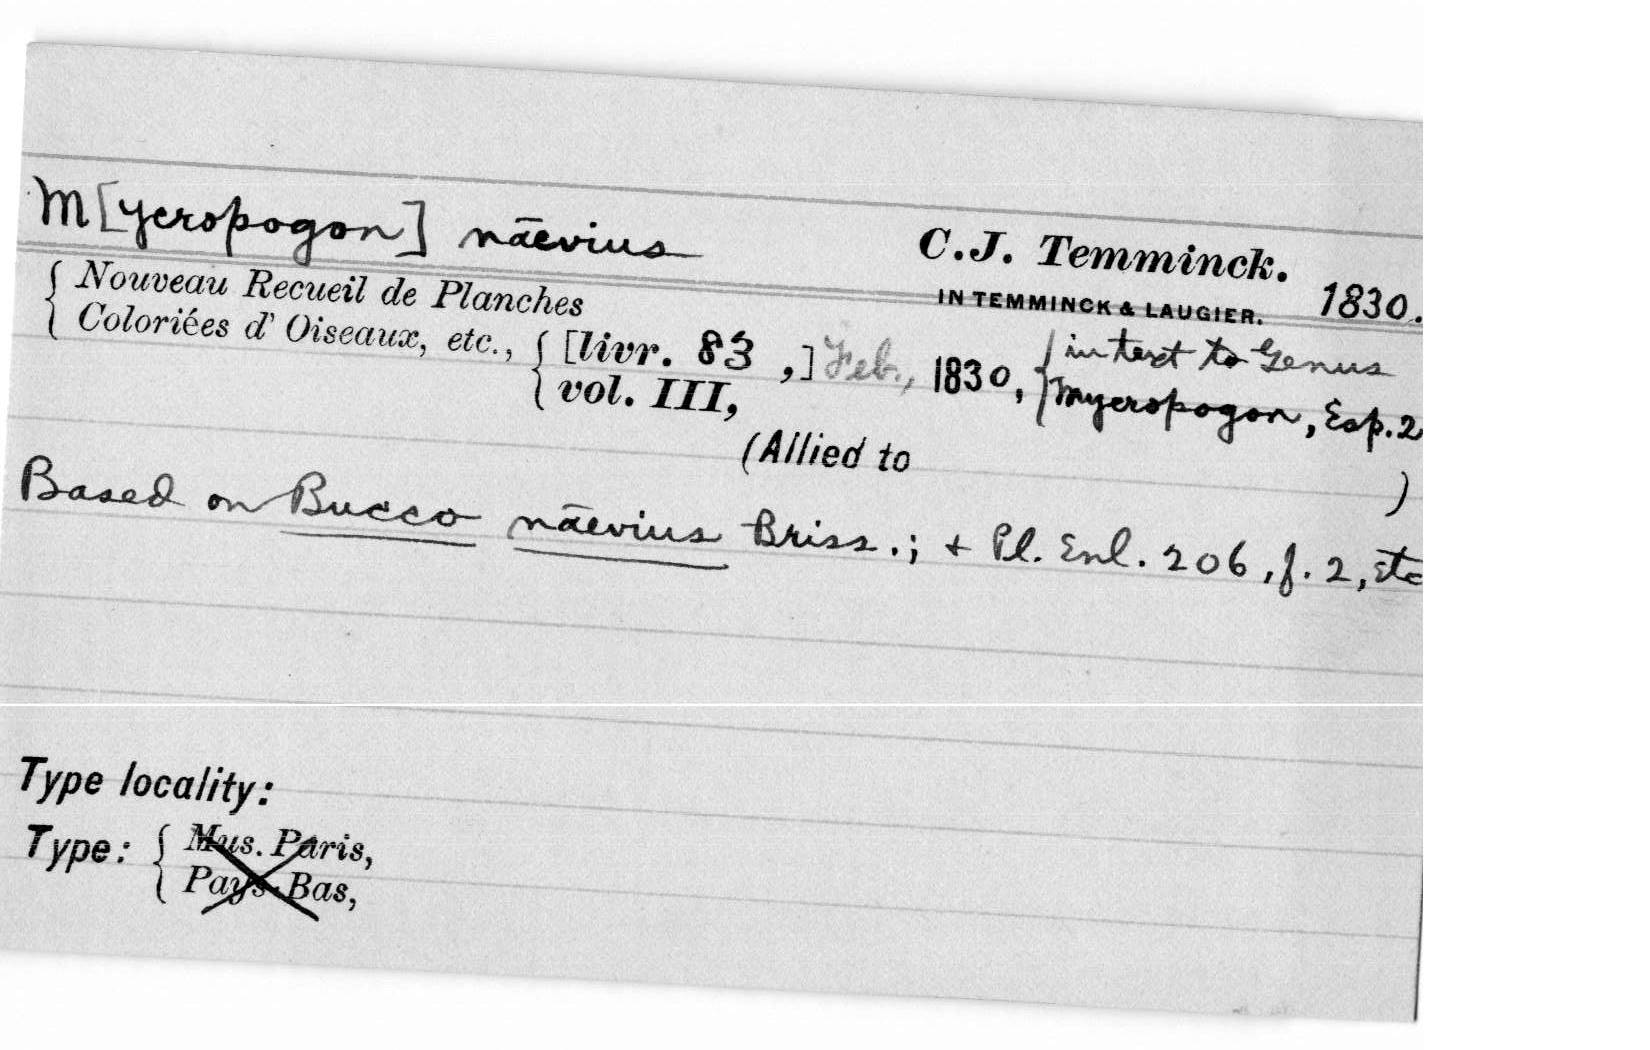 M[ycropogon] nāevius
C.J. Temminck.
IN TEMMINCK & LAUGIER. 1830.
{ Nouveau Recueil de Planches
Coloriées d' Oiseaux, etc., { [livr. 83 ,] Feb., 1830, { in text to Genus
vol. III, Mycropogon, Esp. 2
(Allied to )
Based on Bucco nāevius Briss.; + Pl. Enl. 206, f. 2, Etc
Type locality:
Type: { Mus. Paris,
Pays-Bas,